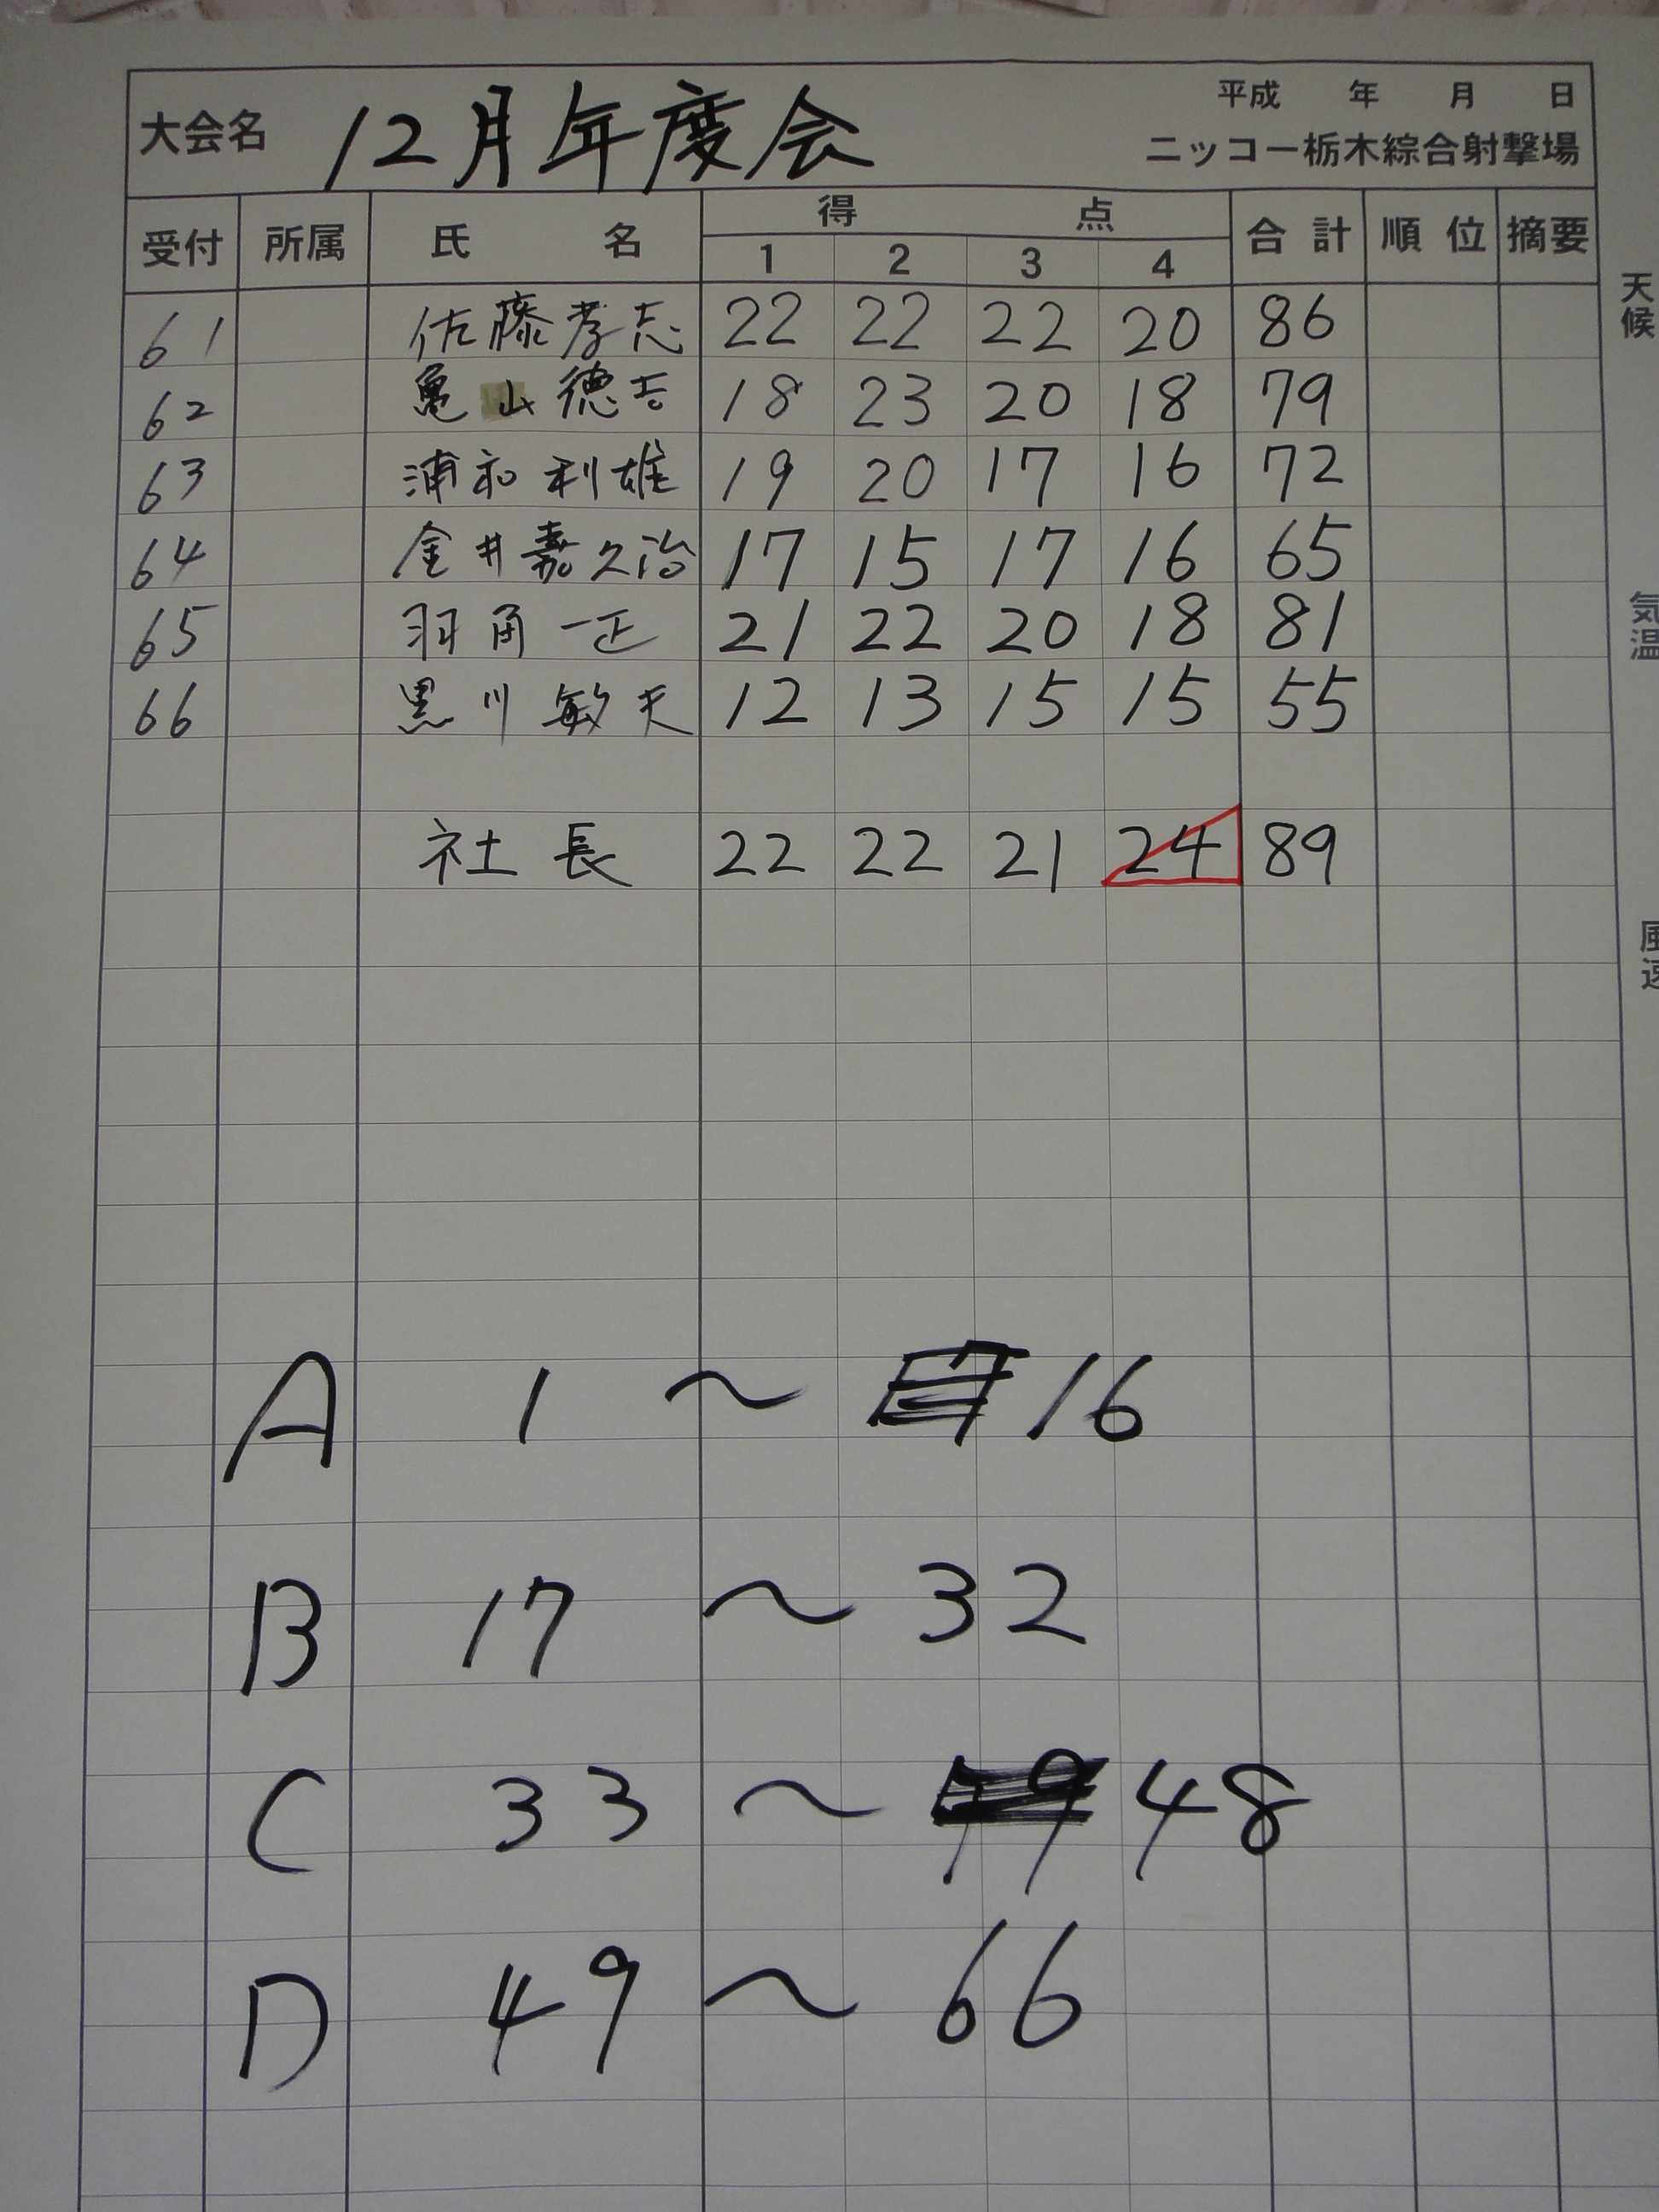 平成 年 月 日
大会名 12月年度会
ニッコー栃木綜合射撃場
受付 所属 氏 名 得 点 合計 順位 摘要
1 2 3 4
61 佐藤孝志 22 22 22 20 86
62 亀山徳吉 18 23 20 18 79
63 浦和利雄 19 20 17 16 72
64 金井嘉久治 17 15 17 16 65
65 羽角一正 21 22 20 18 81
66 黒川敏夫 12 13 15 15 55
社長 22 22 21 24 89
A 1 〜 16
B 17 〜 32
C 33 〜 48
D 49 〜 66
天候
気温
風速